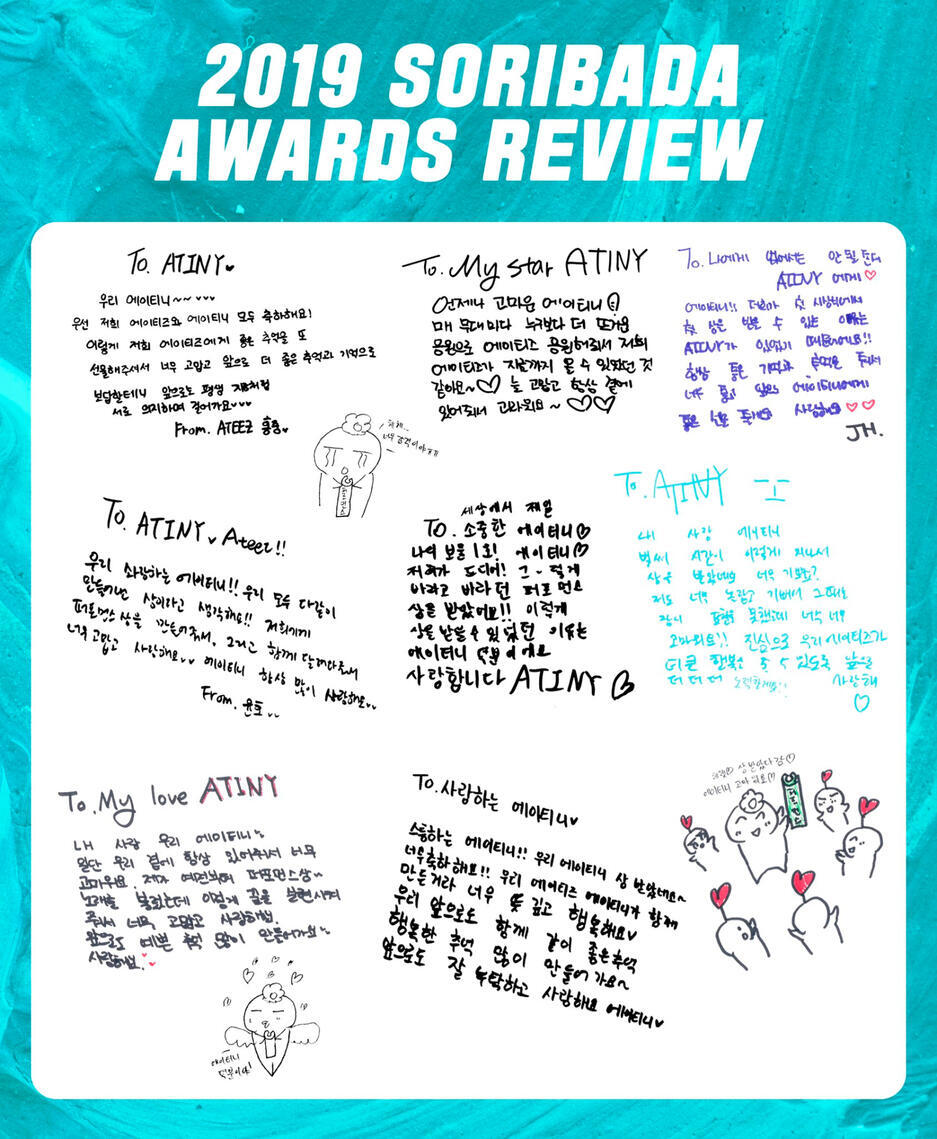 2019 SORIBADA
AWARDS REVIEW
To. ATINY♥
우리 에이티니~~♥♥♥
우선 저희 에이티즈와 에이티니 모두 축하해요!
이렇게 저희 에이티즈에게 좋은 추억을 또
선물해주셔서 너무 고맙고 앞으로 더 좋은 추억과 기억으로
보답할테니 앞으로도 평생 지금처럼
서로 의지하며 걸어가요♥♥♥
From. ATEEZ 홍중♥
너무 감격이야ㅠㅠ
To. My star ATINY
언제나 고마운 에이티니
매 무대마다 누구보다 더 뜨거운
응원으로 에이티즈 응원해줘서 저희
에이티즈가 지금까지 올 수 있었던 것
같아요~♡ 늘 고맙고 항상 곁에
있어줘서 고마워요~♡♡
To. 나에게 없어서는 안 될 존재
ATINY 에게♡
에이티니!! 저희가 첫 시상식에서
첫 상을 받을 수 있는 이유는
ATINY가 있었기 때문이에요!!
항상 좋은 기억과 추억을 줘서
너무 고맙고 앞으로 에이티니에게
좋은 선물 줄게요 사랑해요♡♡
JH.
To. ATINY ♥ Ateez!!
우리 사랑하는 에이티니!! 우리 모두 다같이
만들어낸 상이라고 생각해요!! 저희에게
퍼포먼스상을 만들어줘서, 그리고 함께 달려와줘서
너무 고맙고 사랑해요♥♥ 에이티니 항상 많이 사랑해요♥♥
From. 윤호♥♥
세상에서 제일
TO. 소중한 에이티니♡
나의 보물 1호! 에이티니♡
저희가 드디어! 그-렇게
바라고 바라던 퍼포먼스
상을 받았어요!! 이렇게
상을 받을 수 있었던 이유는
에이티니 덕분이에요
사랑합니다 ATINY♡
To. ATINY
내 사랑 에이티니
벌써 시간이 이렇게 지나서
상을 받았네요 너무 기쁘죠?
저도 너무 놀랍고 기뻐서 그때는
말이 못했는데 너무 너무
고마워요!! 진심으로 우리 에이티즈가
더 큰 행복을 줄 수 있도록 앞으로
더 더 더 노력할게요!! 사랑해
♡
To. My love ATINY
내 사랑 우리 에이티니~
일단 우리 곁에 항상 있어주서 너무
고마워요. 제가 예전부터 퍼포먼스상~
노래를 불렀는데 이렇게 꿈을 실현시켜
줘서 너무 고맙고 사랑해요.
앞으로도 예쁜 추억 많이 만들어가요~
사랑해요.♥♥
에이티니
덕분이야!
To. 사랑하는 에이티니♥
소중하는 에이티니!! 우리 에이티니 상 받았네요~
너무축하해요!! 우리 에이티즈 에이티니가 함께
만든거라 너무 뜻 깊고 행복해요♥
우리 앞으로도 함께 같이 좋은추억
행복한 추억 많이 만들어 가요~
앞으로도 잘 부탁하고 사랑해요 에이티니♥
상 받았다감♡
에이티니 고마워요♡
퍼포먼스